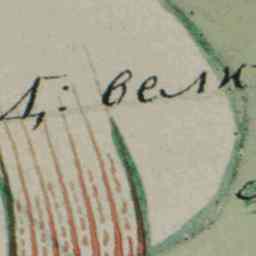 Д: велк